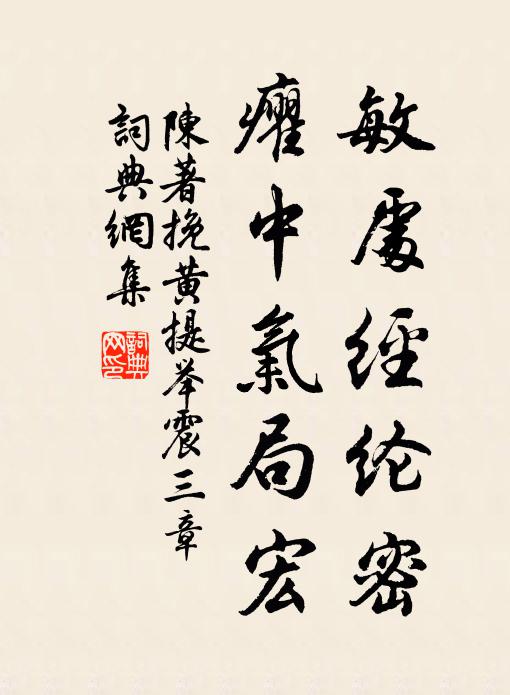 敏處經纶密
癯中氣局宏
陳著挽黄提举震三章
詞典網集
詞典网印